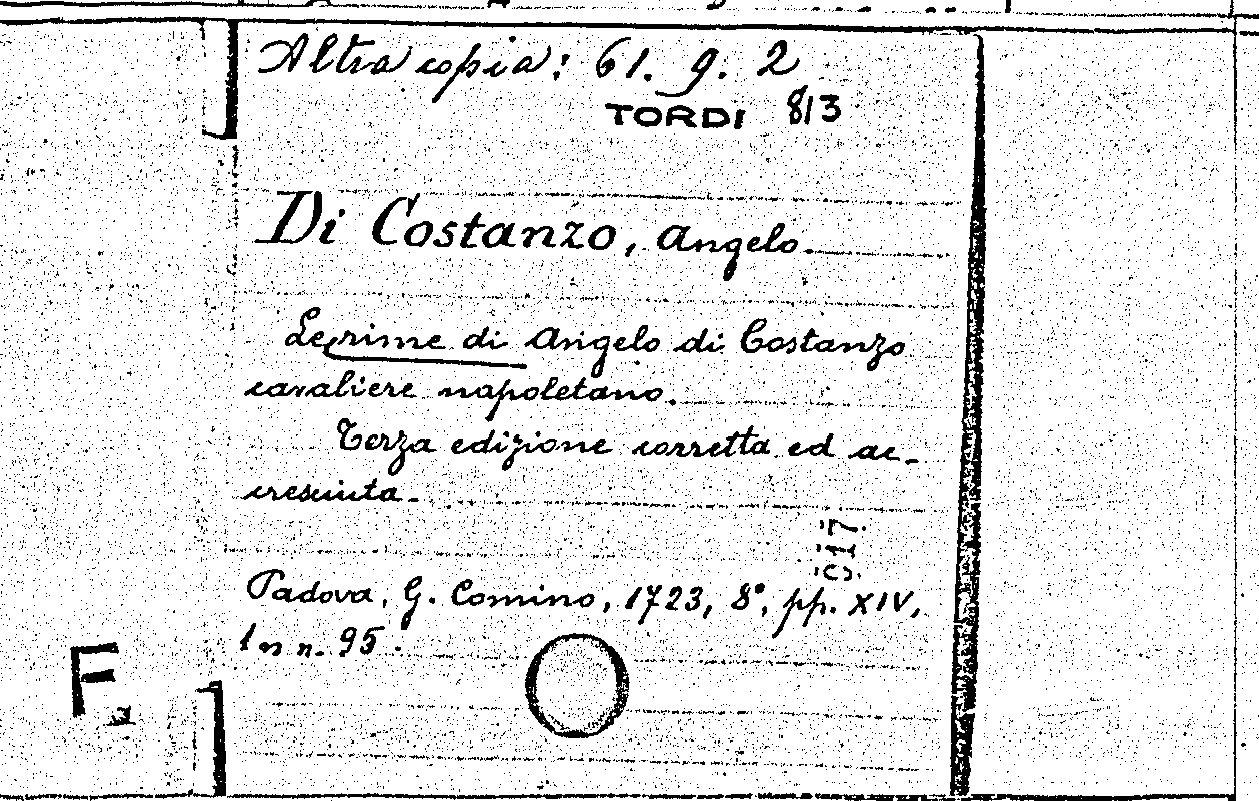 Altra copia: 61. 9. 2
TORDI 813
Di Costanzo, Angelo.
Le rime di Angelo di Costanzo
cavaliere napoletano.
Terza edizione corretta ed ac-
cresciuta.
Padova, G. Comino, 1723, 8°, pp. XIV,
n. 95.
F